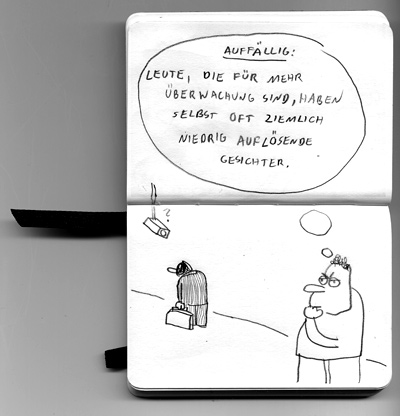 AUFFÄLLIG:
LEUTE, DIE FÜR MEHR
ÜBERWACHUNG SIND, HABEN
SELBST OFT ZIEMLICH
NIEDRIG AUFLÖSENDE
GESICHTER.
?